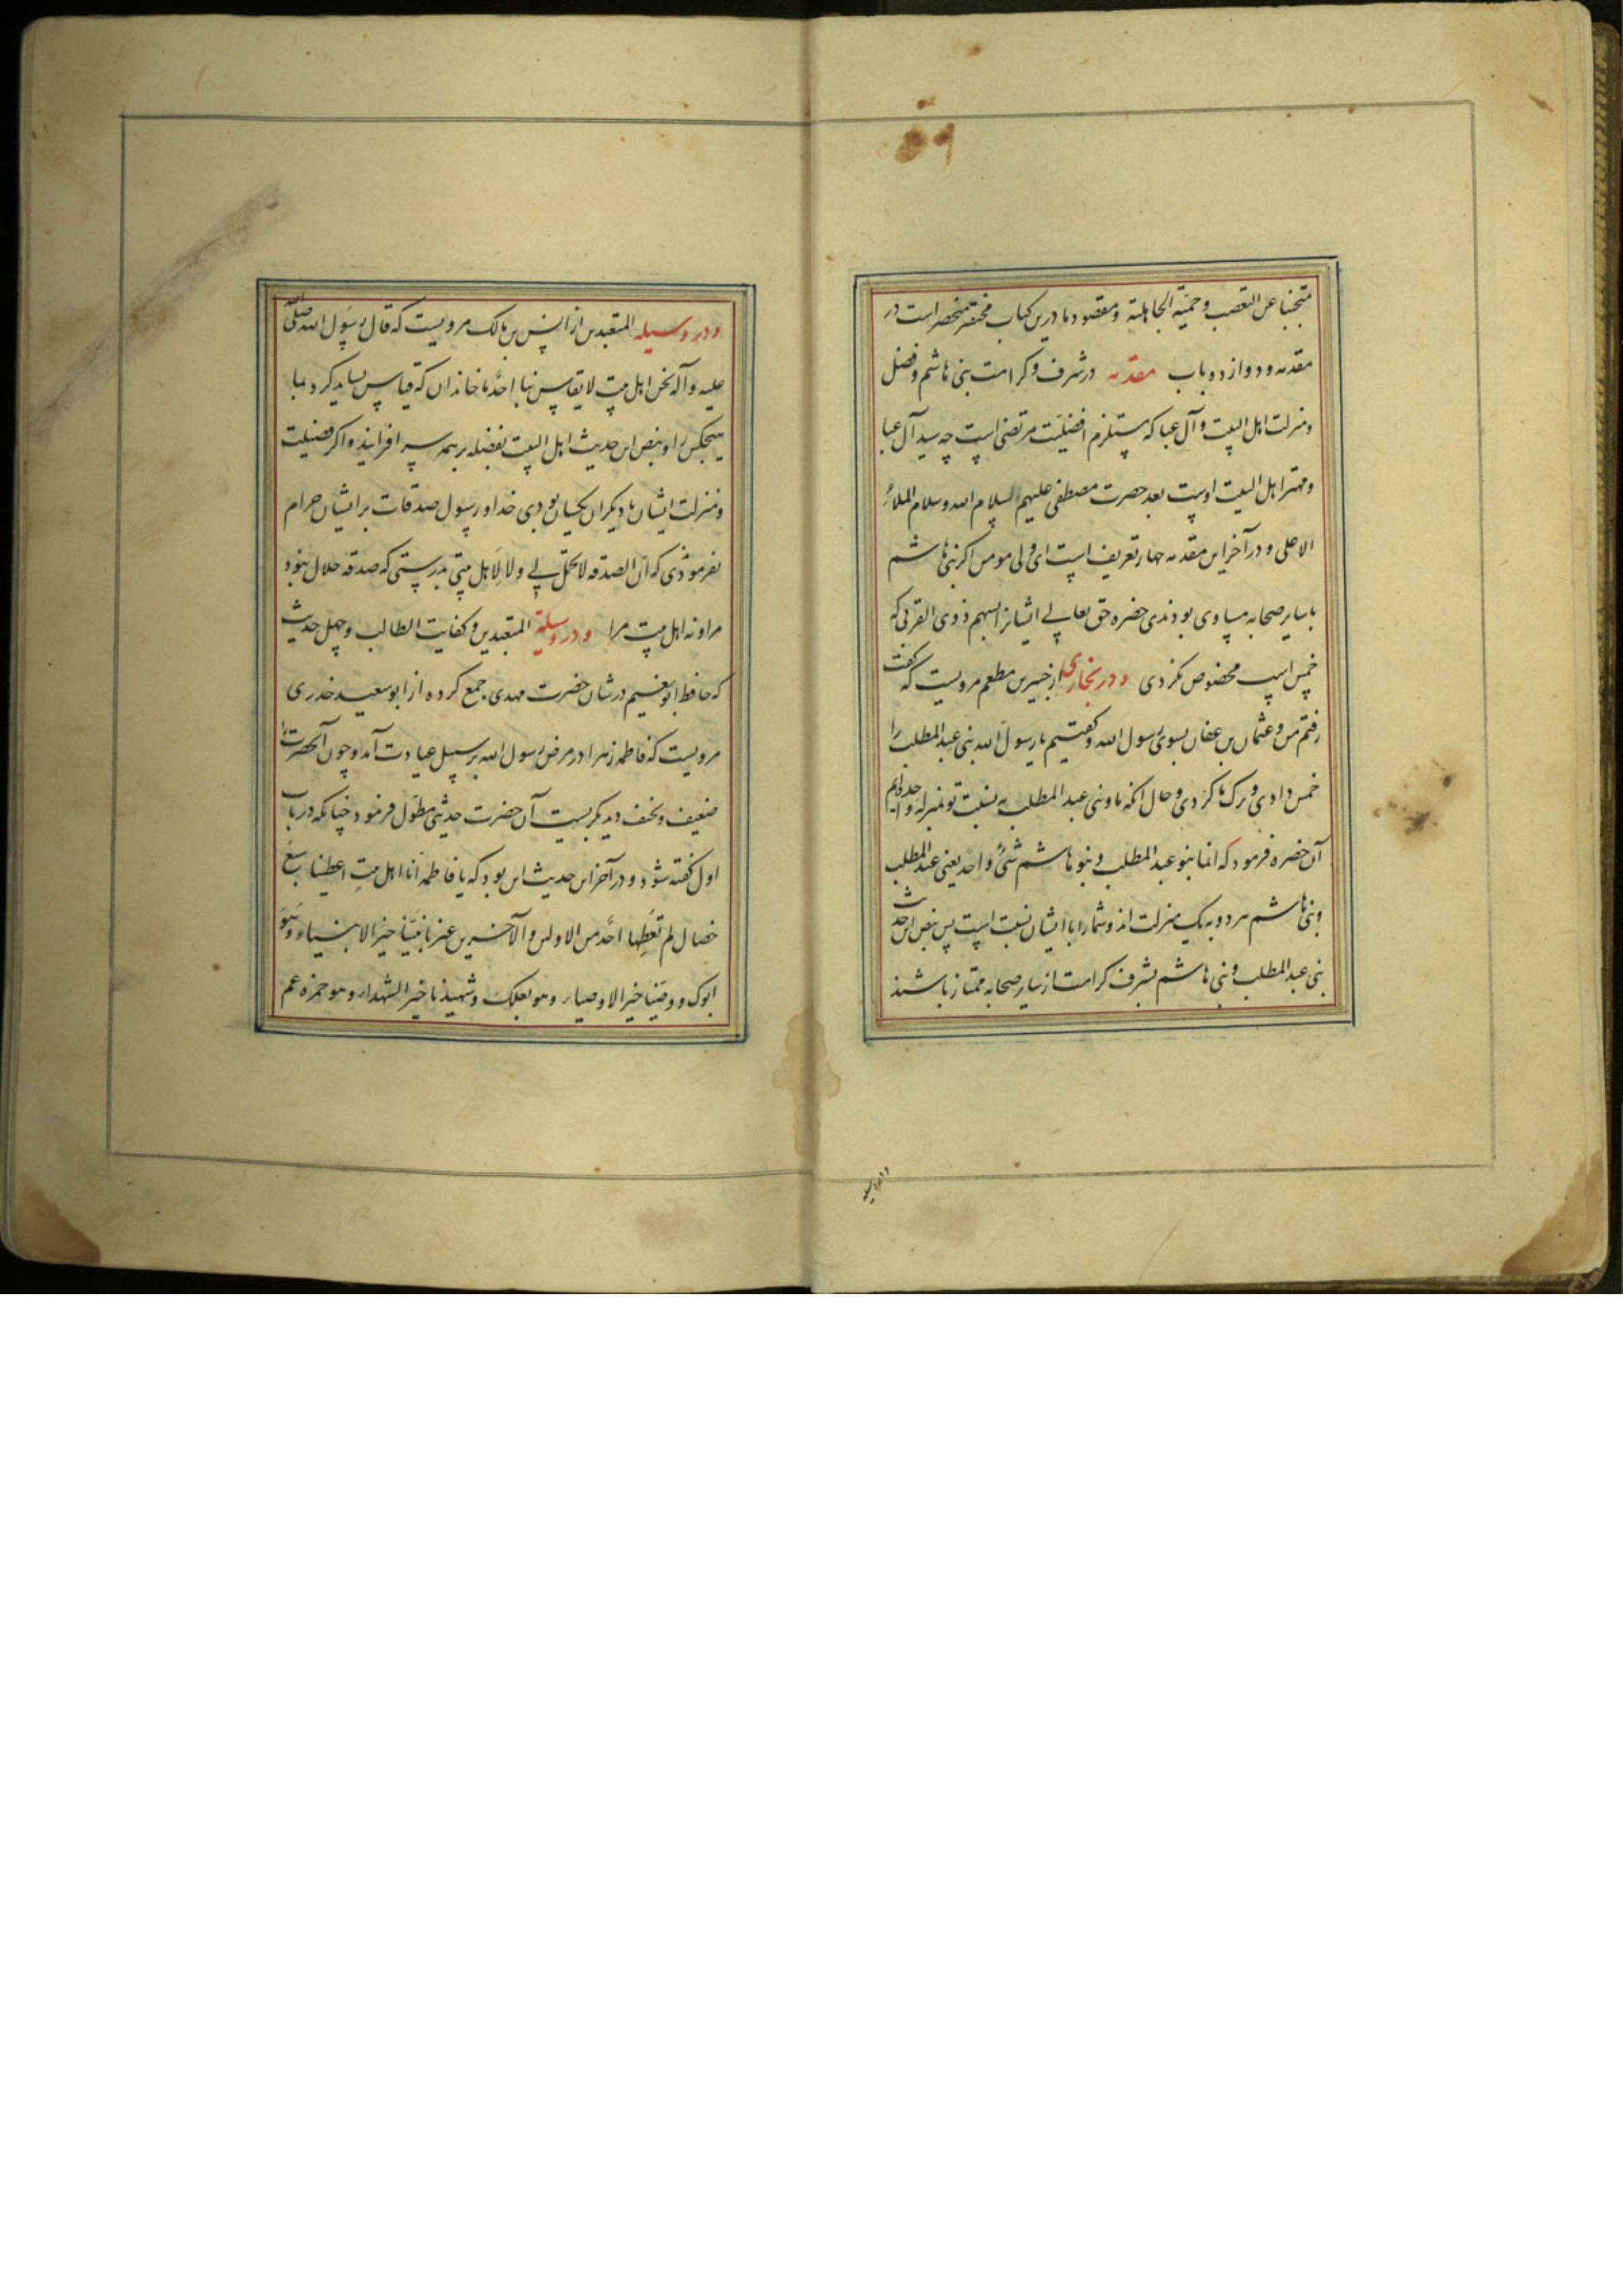 متجنبا عن التعصب وحمیّة الجاهلیّه ومقصود ما درین کتاب مختصر منحصر است در
مقدمه و دوازده باب مقدمه در شرف و کرامت بنی هاشم وفضل
ومنزلت اهل البیت وآل عبا که مستلزم افضلیّت مرتضی است چه سید آل عبا
ومهتر اهل البیت اوست بعد حضرت مصطفی علیهم السلام الله وسلام الملاء
الاعلی و در آخر این مقدمه چهار تعریف است ای ولی مومن اکر بنی هاشم
با سایر صحابه مساوی بودندی حضره حق تعالی ایشانرا بسهم ذوی القربی که
خمس است مخصوص نکردی ودر بخاری از جبیر بن مطعم مرویست که کفت
رفتم من وعثمان بن عفان بسوی رسول الله وکفتیم یا رسول الله بنی عبد المطلب را
خمس دادی وترک ما کردی وحال آنکه ما وبنی عبد المطلب به نسبت تو بمنزله واحده ایم
آن حضره فرمود که انما بنو عبد المطلب وبنو هاشم شئٌ واحدٌ یعنی عبد المطلب
وبنی هاشم هر دو به یک منزلت اند وشما را با ایشان نسبت است پس بنص این حدیث
بنی عبد المطلب وبنی هاشم بشرف کرامت از سایر صحابه ممتاز باشند
ودر وسیله
ودر وسیله المتعبدین از انس بن مالک مرویست که قال رسول الله صلی الله
علیه وآله نحن اهل بیت لا یقاس بنا احدٌ ما خاندان که قیاس نباید کرد بما
هیچکس را وبنص این حدیث اهل البیت بفضله بر همه سر افرازند واکر فضیلت
ومنزلت ایشان با دیکران یکسان بودی خدا ورسول صدقات بر ایشان حرام
نفرمودی که انّ الصدقه لا تحل لی ولا لِاهل بیتی بدرستی که صدقه حلال نبود
مرا ونه اهل بیت مرا ودر وسیلة المتعبدین وکفایت الطالب وچهل حدیث
که حافظ ابو نعیم در شان حضرت مهدی جمع کرده از ابو سعید خدری
مرویست که فاطمه زهرا در مرض رسول الله بر سبیل عیادت آمد وچون آنحضرت را
ضعیف ونحف دید بکریست آن حضرت حدیثی مطوّل فرمود چنانکه در باب
اول کفته شود ودر آخر این حدیث این بود که یا فاطمه اَنا اهل بیتٍ اعطینا سبع
خصال لم تعطِها احدٌ من الاولین والآخرین غیرنا نبیّنا خیر الانبیاء وهُوَ
ابوک ووصیّنا خیر الاوصیاء وهو بعلک وشهیدنا خیر الشهداء وهو حمزه عم